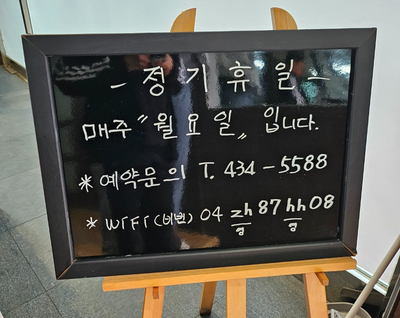 - 정기휴일 -
매주 "월요일" 입니다.
* 예약문의 T. 434-5588
* WiFi (비번) 04 zh 87 hh 08
영 영